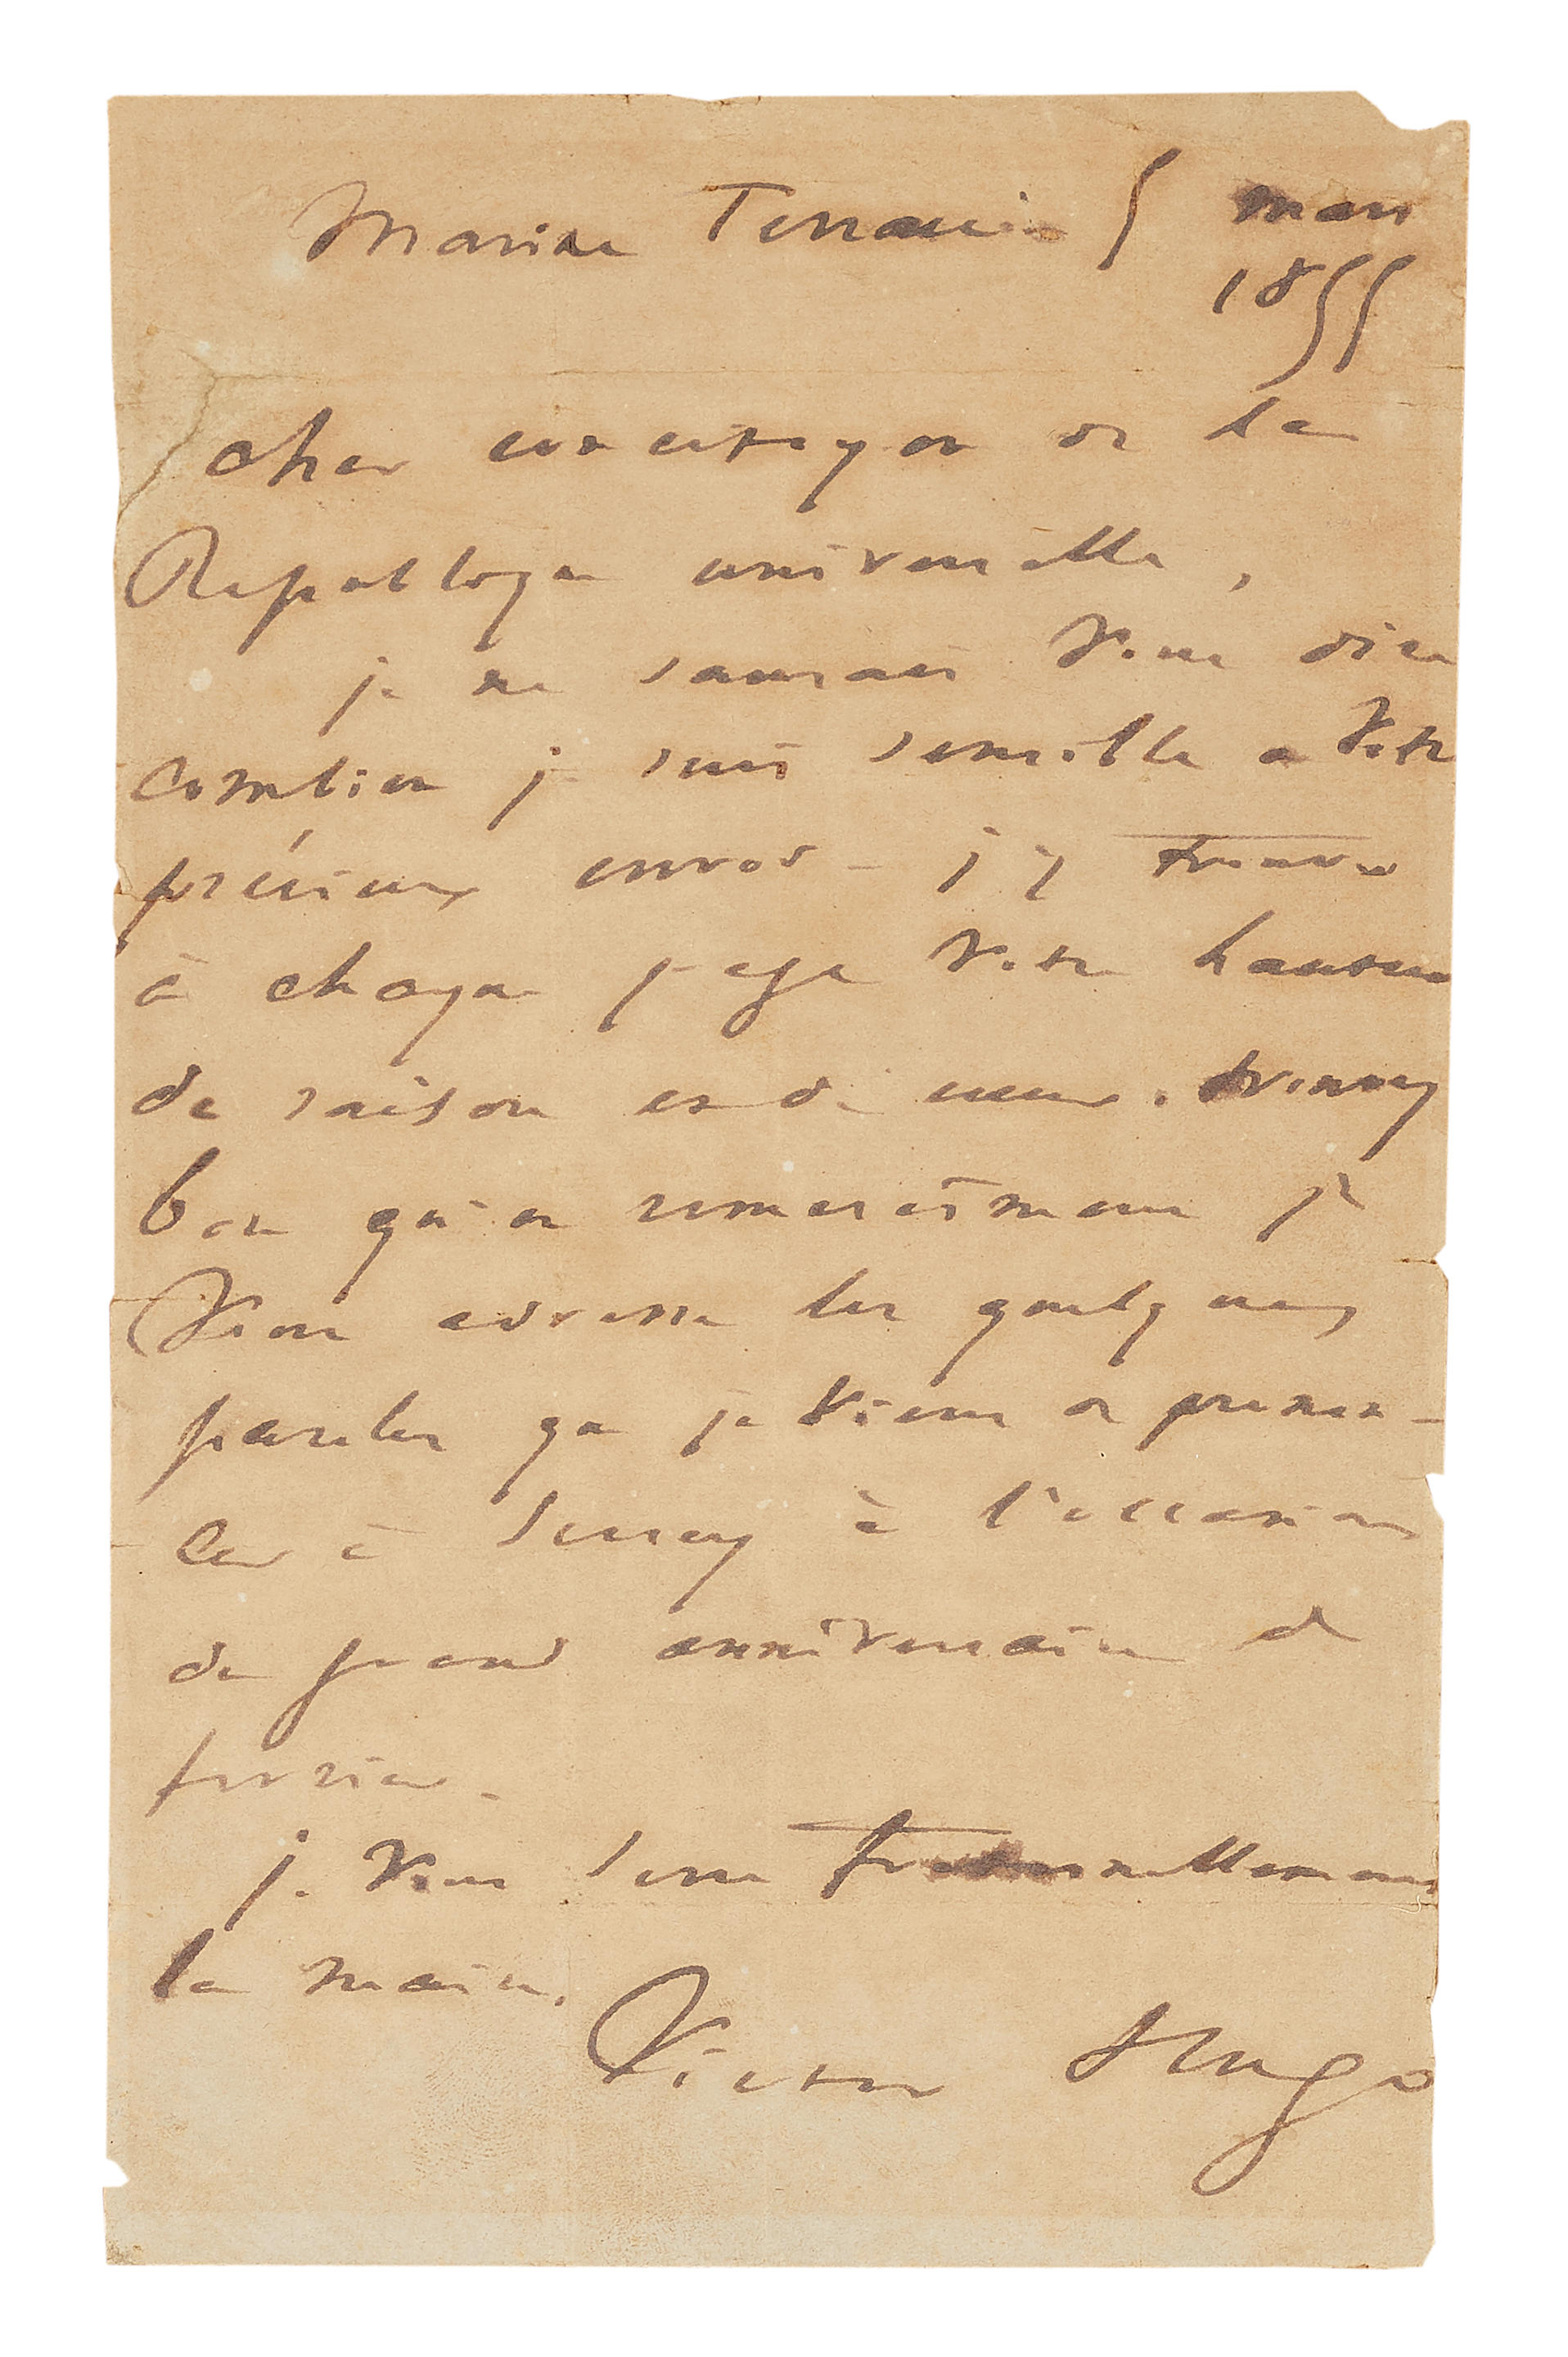 Marine Terrace 5 mars
1855
cher concitoyen de la
République universelle,
je ne saurais vous dire
combien je suis sensible à votre
précieux envoi – j'y trouve
à chaque page votre hauteur
de raison et de cœur. trouvez
bon qu'en remerciement je
vous adresse les quelques
paroles que je viens de pronon-
cer à Jersey à l'occasion
du grand anniversaire de
février.
je vous serre fraternellement
la main.
Victor Hugo